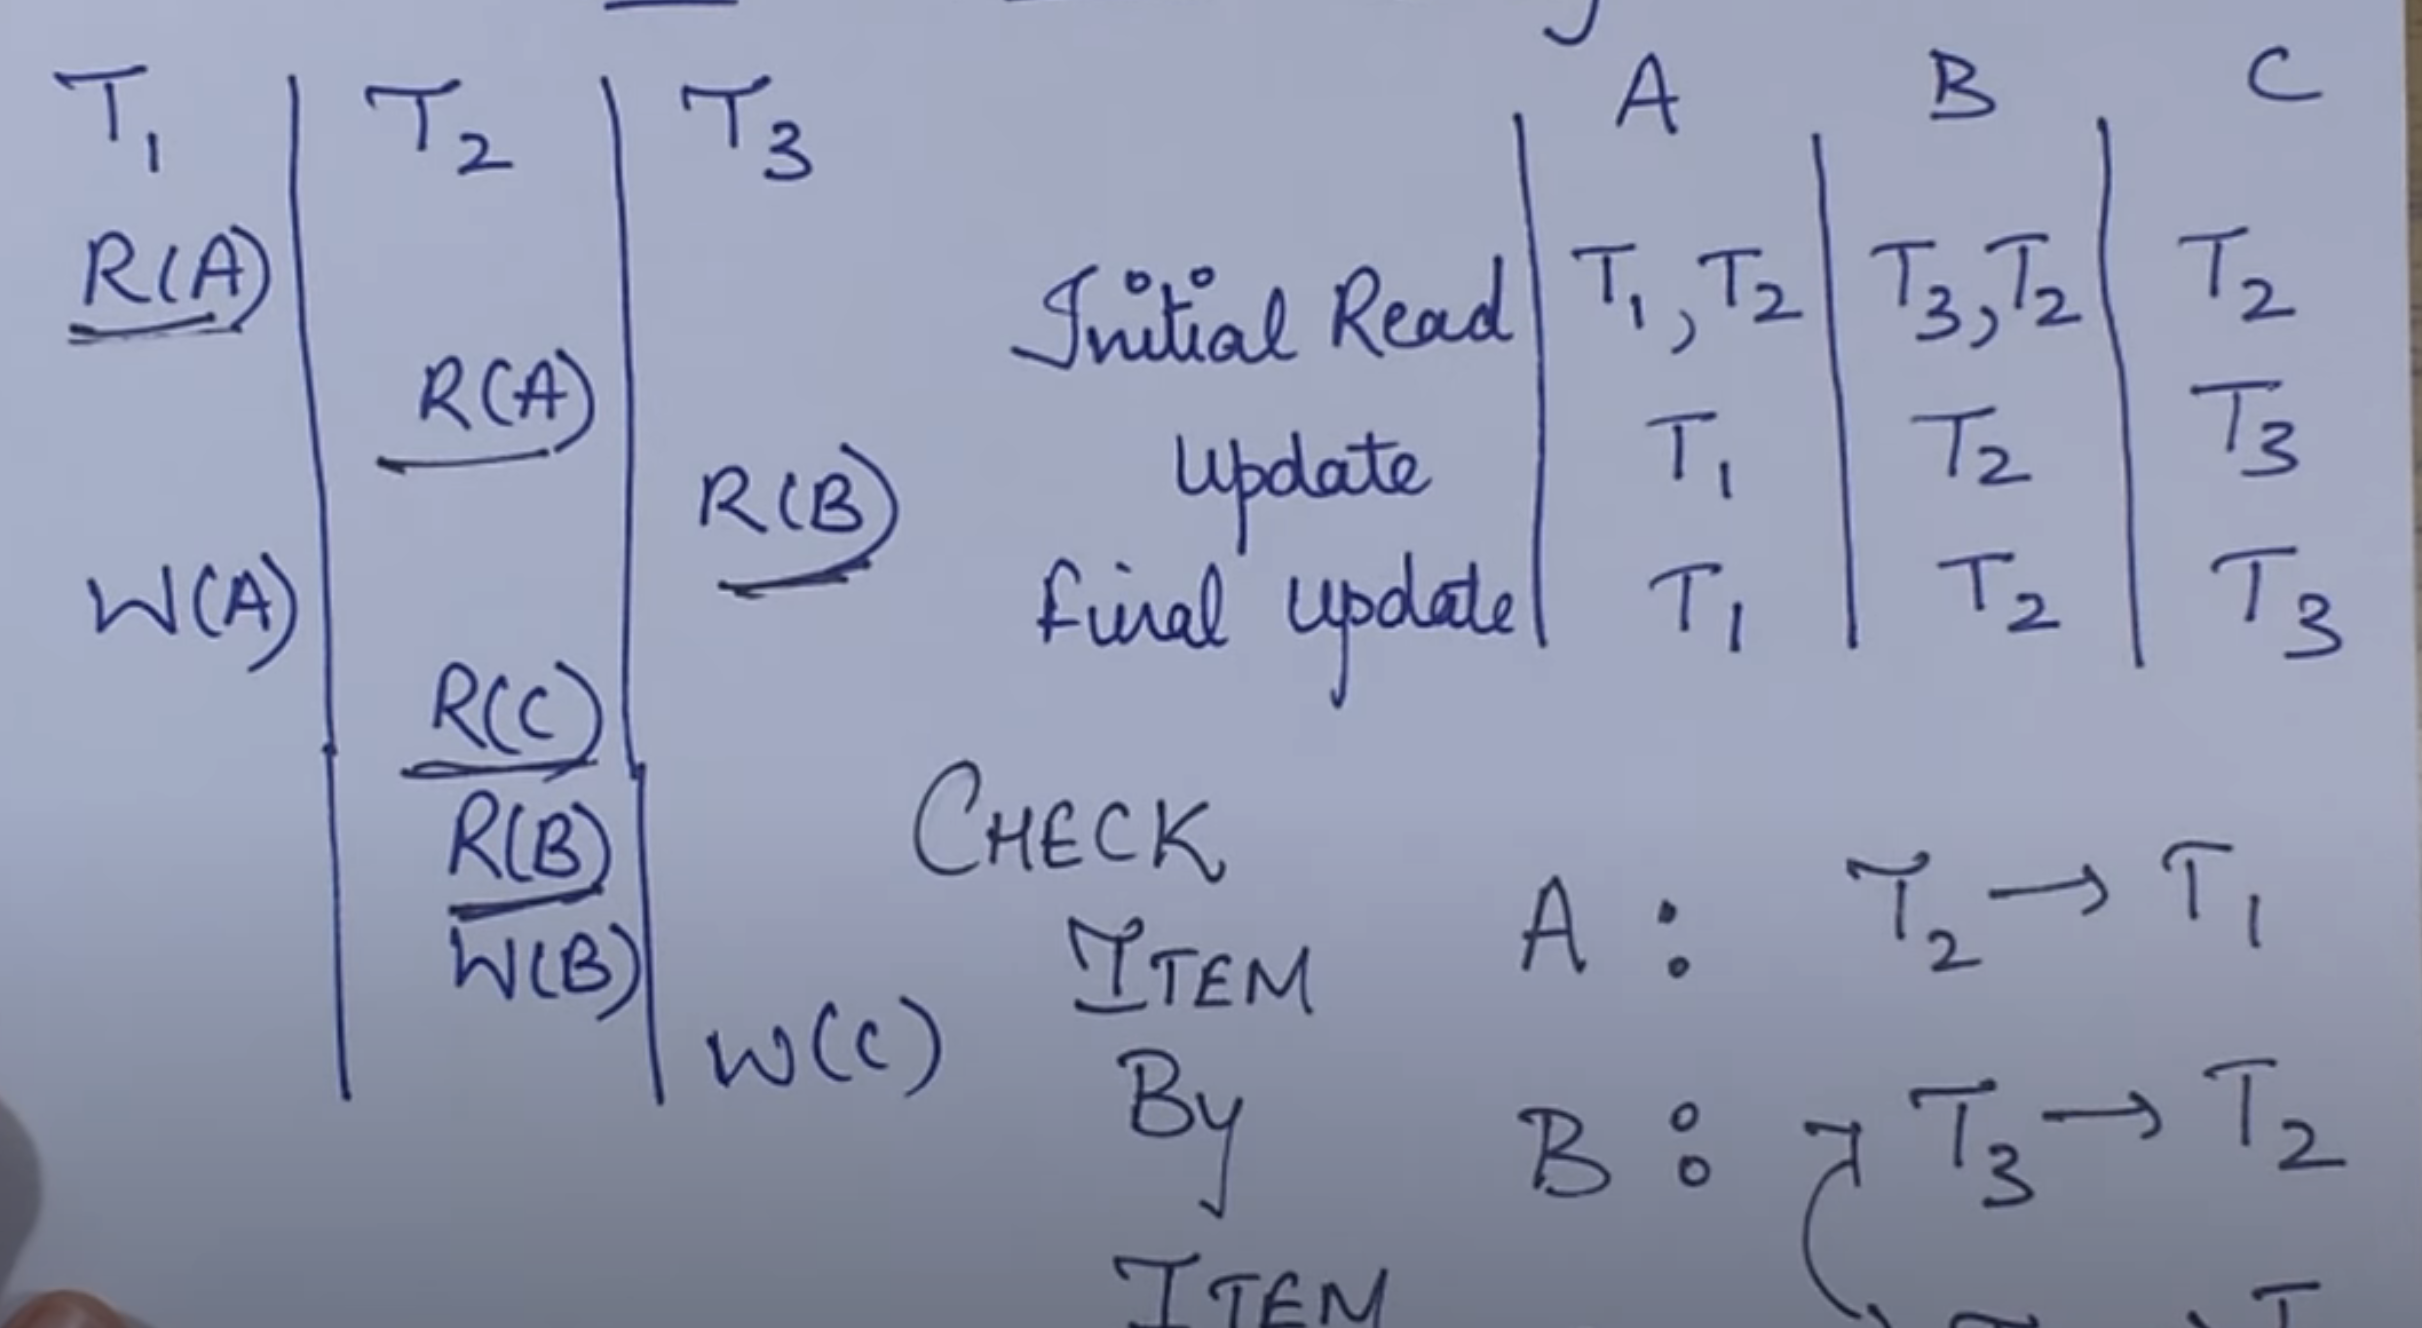 T1 T2 T3
R(A)
R(A)
R(B)
W(A)
R(C)
R(B)
W(B)
W(C)
A B C
Initial Read T1, T2 T3, T2 T2
Update T1 T2 T3
Final Update T1 T2 T3
CHECK
ITEM
By
ITEM
A : T2 → T1
B : T3 → T2